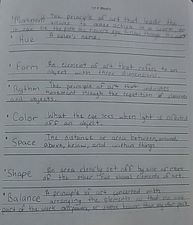 Movement The principle of art that leads the
viewer to sense action in a work, or
it can be the path the viewer's eye follows
Hue A color's name.
Form An element of art that refers to an
object with three dimensions.
Rhythm The principle of art that indicates
movement through the repetition of elements
and objects.
Color What the eye sees when light is reflected
Space The distance or area between, around,
above, below, and within things
Shape An area clearly set off by one or more
of the other five visual elements of art.
Balance A principle of art concerned with
arranging the elements so that no one
part of the work overpowers, or seems heavier than any other part